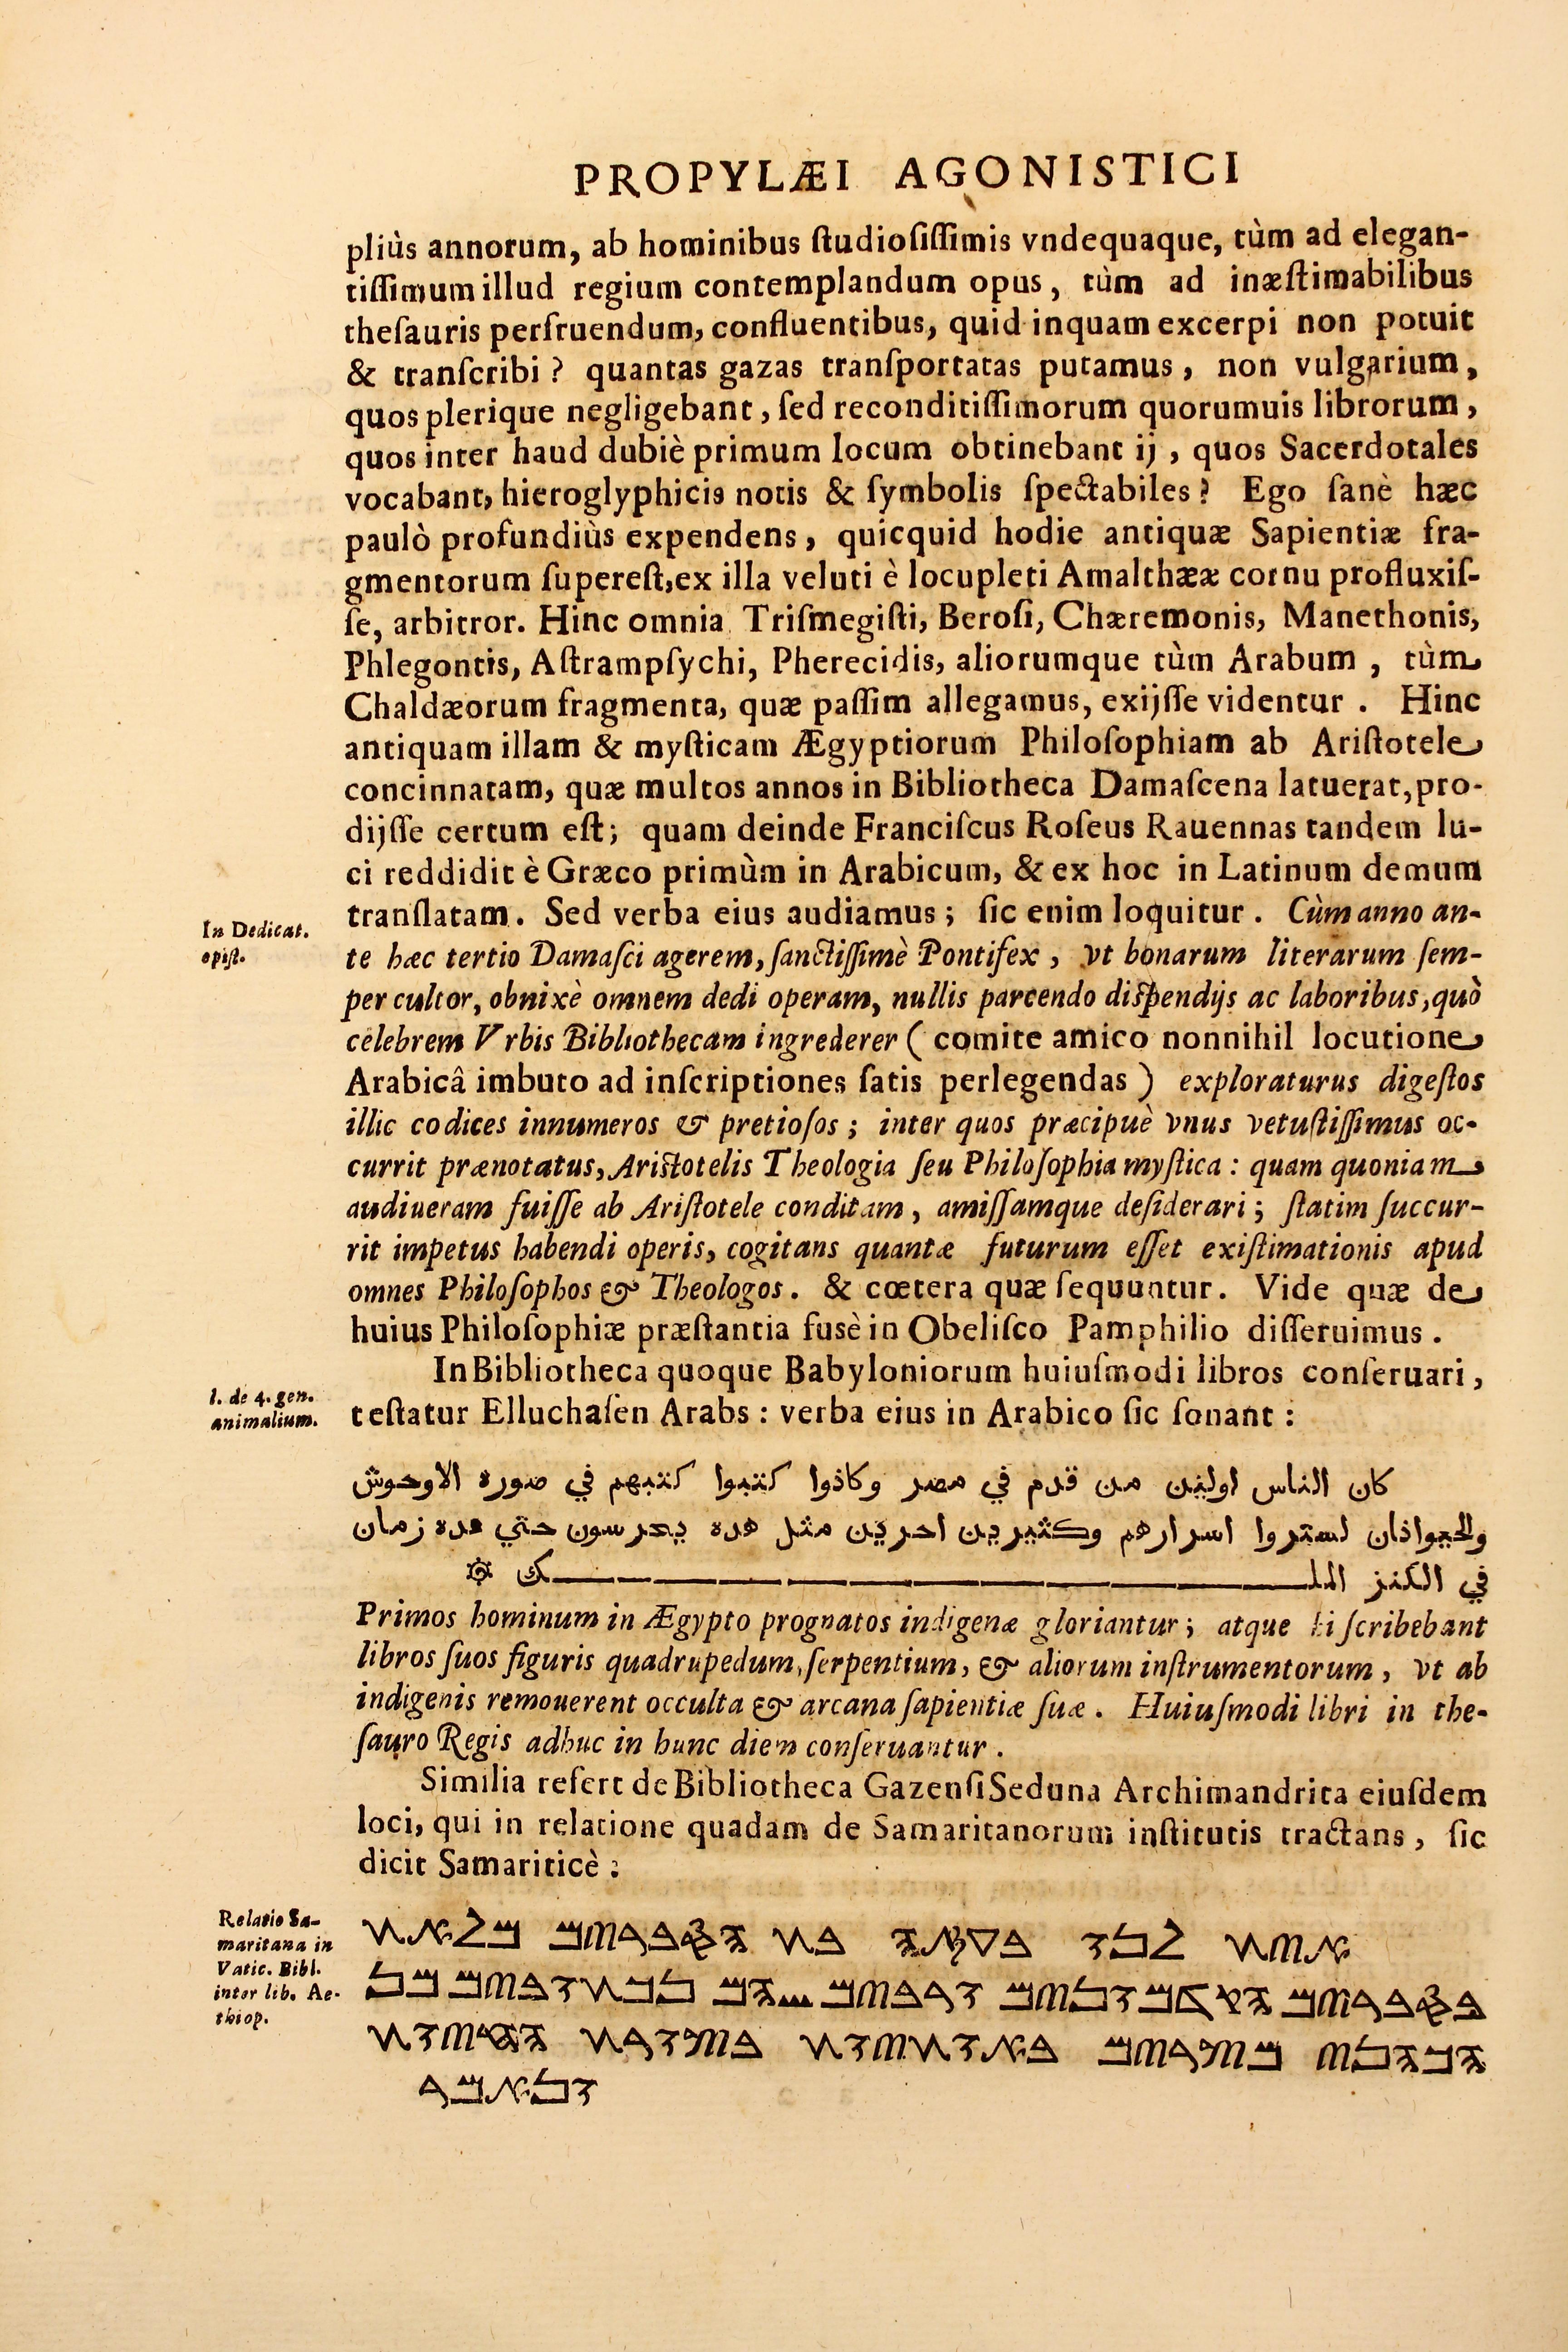 PROPYLÆI AGONISTICI
pliùs annorum, ab hominibus ſtudioſiſſimis vndequaque, tùm ad elegan-
tiſſimum illud regium contemplandum opus, tùm ad inæſtimabilibus
theſauris perfruendum, confluentibus, quid inquam excerpi non potuit
& tranſcribi? quantas gazas tranſportatas putamus, non vulgarium,
quos plerique negligebant, ſed reconditiſſimorum quorumuis librorum,
quos inter haud dubiè primum locum obtinebant ij, quos Sacerdotales
vocabant, hieroglyphicis notis & ſymbolis ſpectabiles? Ego ſanè hæc
paulò profundiùs expendens, quicquid hodie antiquæ Sapientiæ fra-
gmentorum ſupereſt, ex illa veluti è locupleti Amalthææ cornu profluxiſ-
ſe, arbitror. Hinc omnia Triſmegiſti, Beroſi, Chæremonis, Manethonis,
Phlegontis, Aſtrampſychi, Pherecidis, aliorumque tùm Arabum, tùm
Chaldæorum fragmenta, quæ paſſim allegamus, exijſſe videntur. Hinc
antiquam illam & myſticam Ægyptiorum Philoſophiam ab Ariſtotele
concinnatam, quæ multos annos in Bibliotheca Damaſcena latuerat, pro-
dijſſe certum eſt; quam deinde Franciſcus Roſeus Rauennas tandem lu-
ci reddidit è Græco primùm in Arabicum, & ex hoc in Latinum demum
In Dedicat.
epiſt.
tranſlatam. Sed verba eius audiamus; ſic enim loquitur. Cùm anno an-
te hæc tertio Damaſci agerem, ſanctiſſimè Pontifex, vt bonarum literarum ſem-
per cultor, obnixè omnem dedi operam, nullis parcendo diſpendijs ac laboribus, quò
celebrem Vrbis Bibliothecam ingrederer (comite amico nonnihil locutione
Arabicâ imbuto ad inſcriptiones ſatis perlegendas) exploraturus digeſtos
illic codices innumeros & pretioſos; inter quos præcipuè vnus vetuſtiſſimus oc-
currit prænotatus, Ariſtotelis Theologia ſeu Philoſophia myſtica: quam quoniam
audiueram fuiſſe ab Ariſtotele conditam, amiſſamque deſiderari; ſtatim ſuccur-
rit impetus habendi operis, cogitans quantæ futurum eſſet exiſtimationis apud
omnes Philoſophos & Theologos. & cœtera quæ ſequuntur. Vide quæ de
huius Philoſophiæ præſtantia fusè in Obeliſco Pamphilio diſſeruimus.
In Bibliotheca quoque Babyloniorum huiuſmodi libros conſeruari,
l. de 4. gen.
animalium.
teſtatur Elluchaſen Arabs: verba eius in Arabico ſic ſonant:
كان الناس اولين من قدم في مصر وكانوا كتبوا كتبهم في صورة الاوحوش
والحيوانان لستروا اسرارهم وكثيرين احرين مثل هده يحرسون حتي هده زمان
في الكنز الملك
Primos hominum in Ægypto prognatos indigenæ gloriantur; atque hi ſcribebant
libros ſuos figuris quadrupedum, ſerpentium, & aliorum inſtrumentorum, vt ab
indigenis remouerent occulta & arcana ſapientiæ ſuæ. Huiuſmodi libri in the-
ſauro Regis adhuc in hunc diem conſeruantur.
Similia refert de Bibliotheca Gazenſi Seduna Archimandrita eiuſdem
loci, qui in relatione quadam de Samaritanorum inſtitutis tractans, ſic
dicit Samariticè:
Relatio Sa-
maritana in
Vatic. Bibl.
inter lib. Ae-
thiop.
אית לנו בעזה בת הספרים מלאת
בספרים הקדמונים ורבים שהם נכתובים מן
הכהני מצרים באותיות בצורת החיות
ונאמר